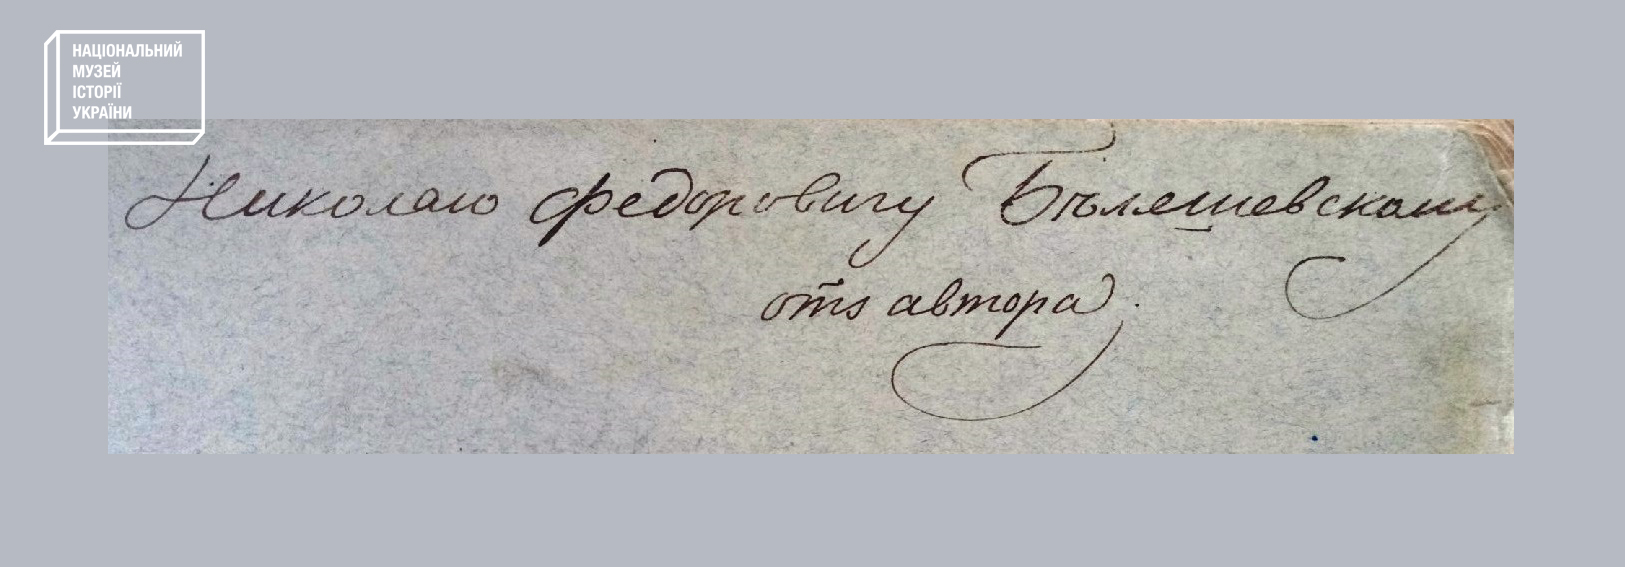 НАЦІОНАЛЬНИЙ
МУЗЕЙ
ІСТОРІЇ
УКРАЇНИ
Николаю Федоровичу Бѣляшевскому
отъ автора.